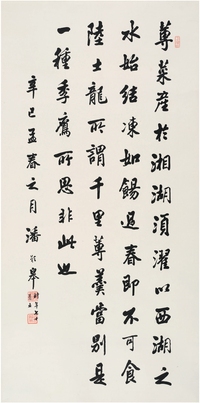 蓴菜產於湘湖須濯以西湖之
水始結凍如餳過春即不可食
陸士龍所謂千里蓴羹當別是
一種季鷹所思非此也
辛巳孟春之月潘齡皋